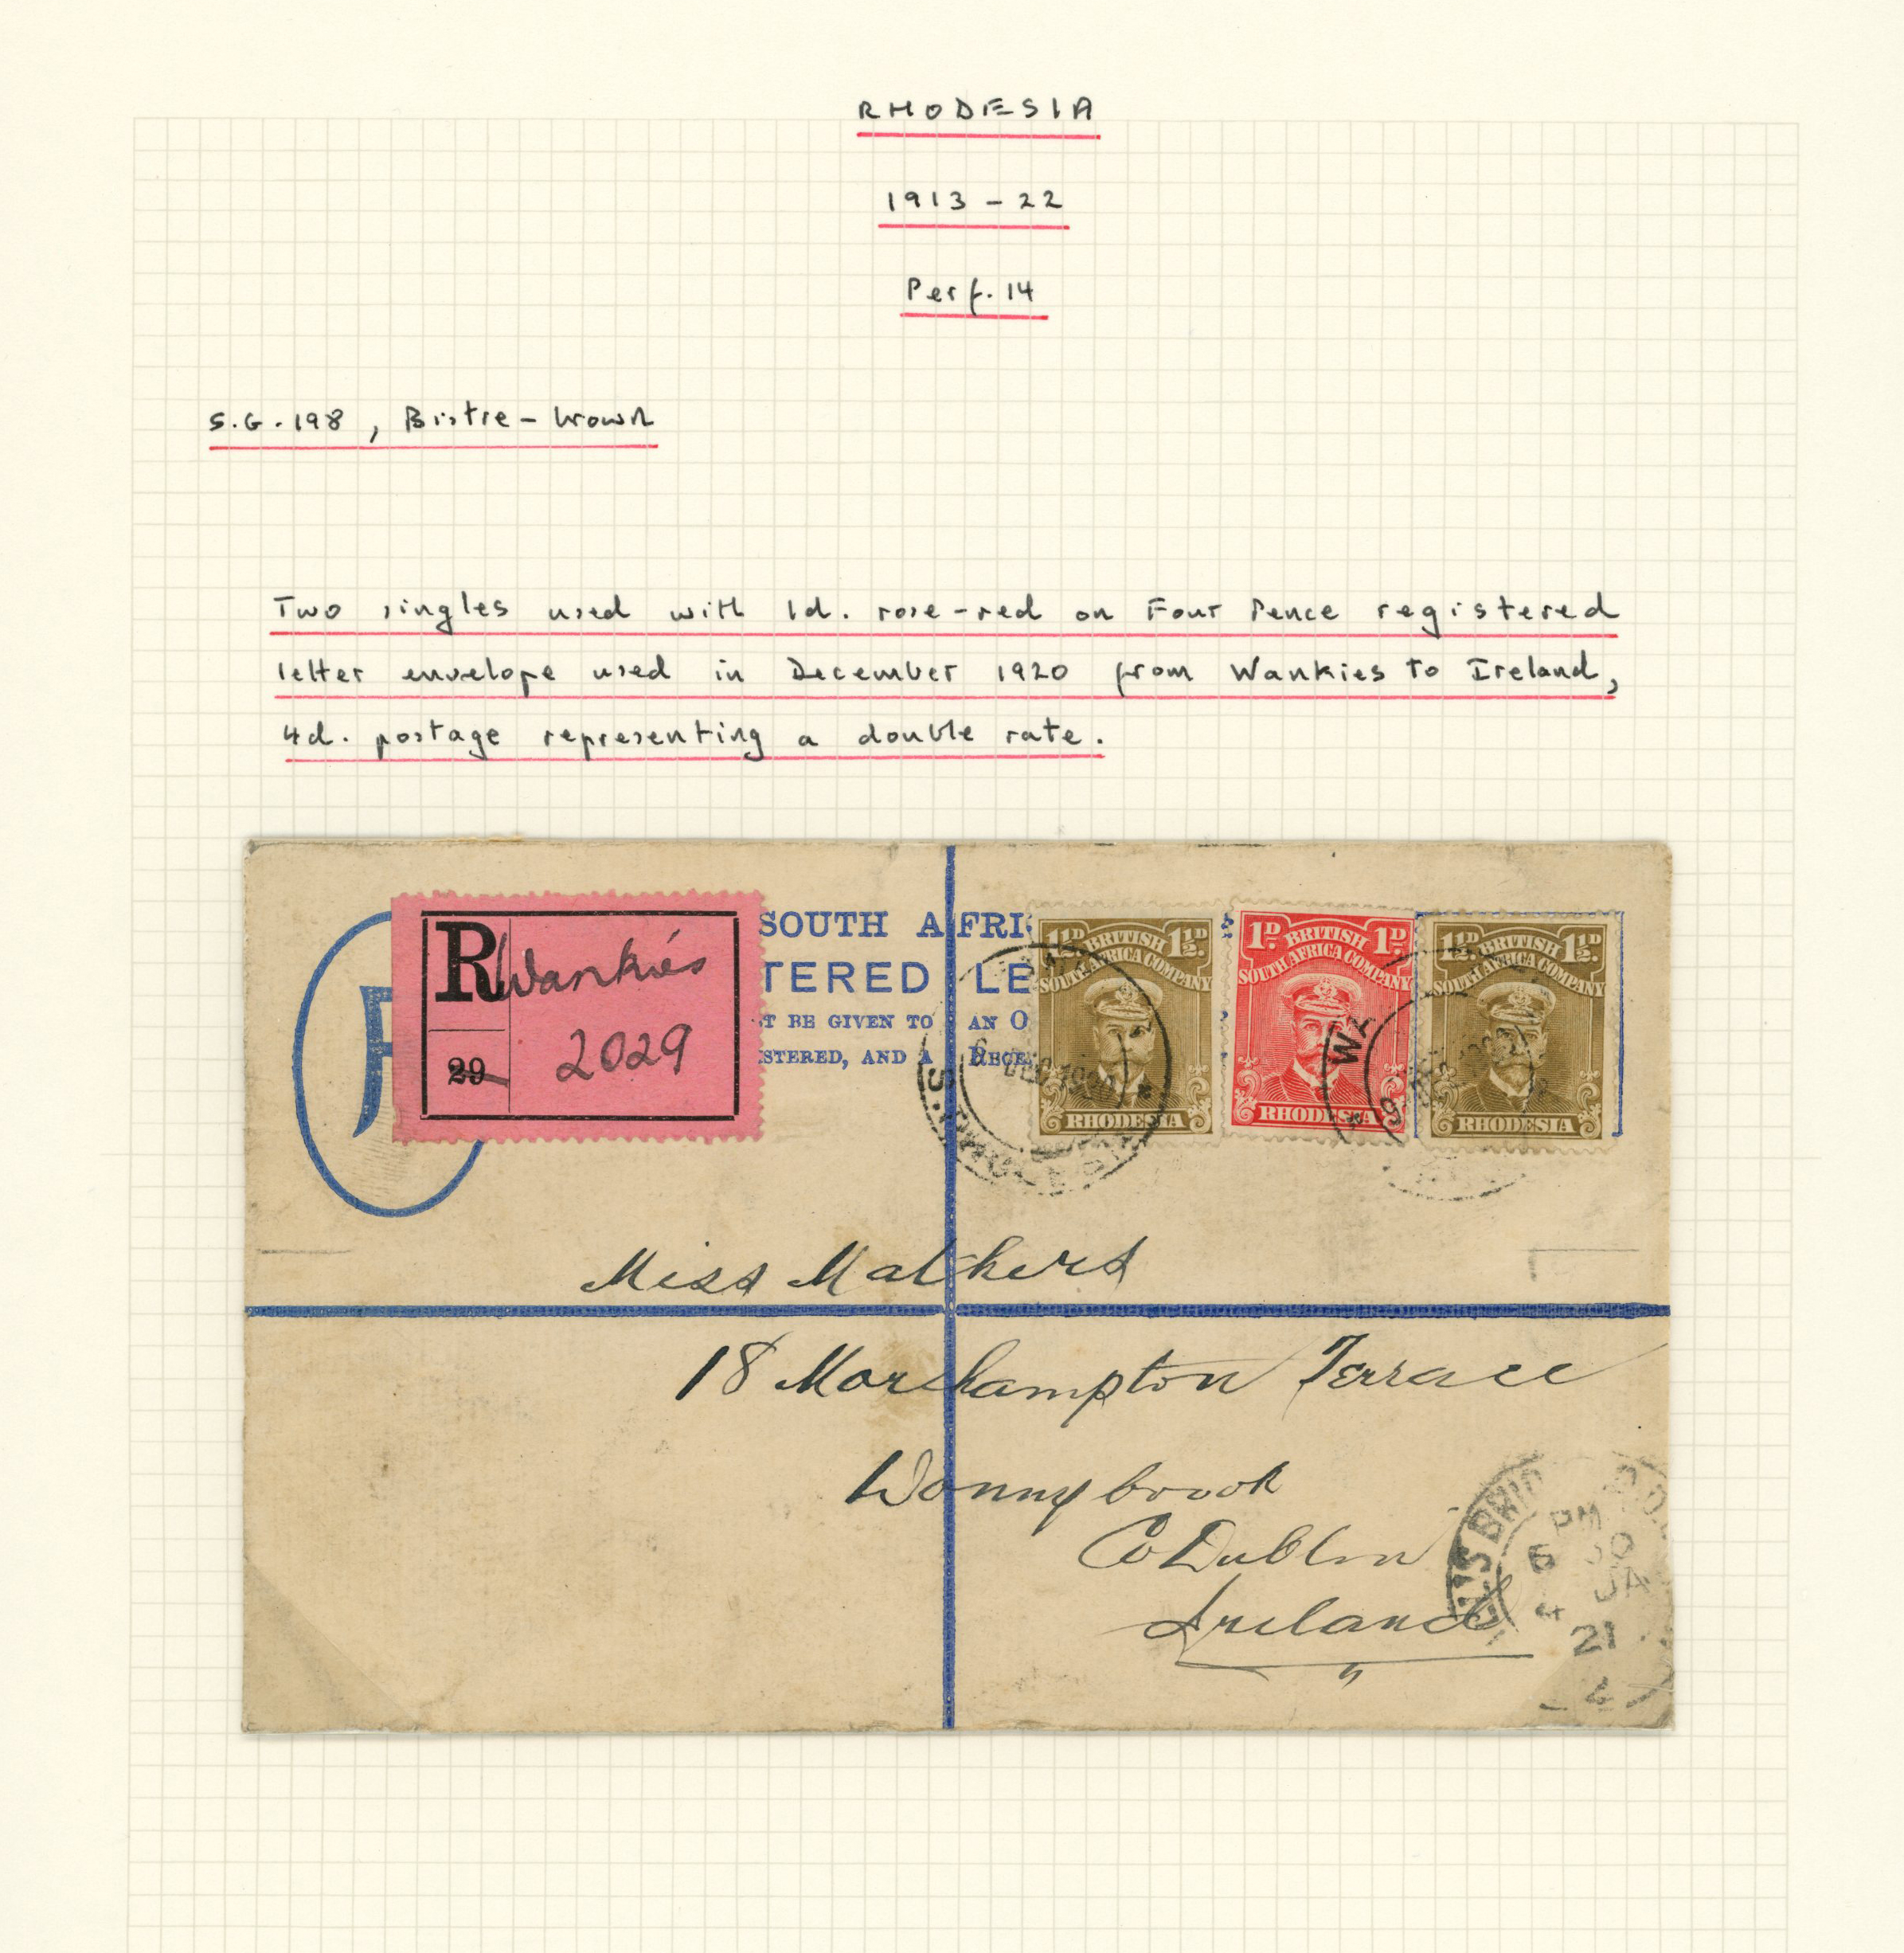 RHODESIA
1913-22
Perf. 14
S.G. 198, Bistre-brown
Two singles used with 1d. rose-red on Four Pence registered
letter envelope used in December 1920 from Wankies to Ireland,
4d. postage representing a double rate.
SOUTH AFRI
TERED LE
T BE GIVEN TO AN O
STERED, AND A RECE
R Wankies
29 2029
1½D BRITISH 1½D
SOUTH AFRICA COMPANY
RHODESIA
1D. BRITISH 1D.
SOUTH AFRICA COMPANY
RHODESIA
1½D BRITISH 1½D
SOUTH AFRICA COMPANY
RHODESIA
6 DEC 1920
WA
6
Miss Mathers
18 Morehampton Terrace
Donnybrook
Co Dublin
Ireland
'S BRID
PM
5 30
4 JA
21